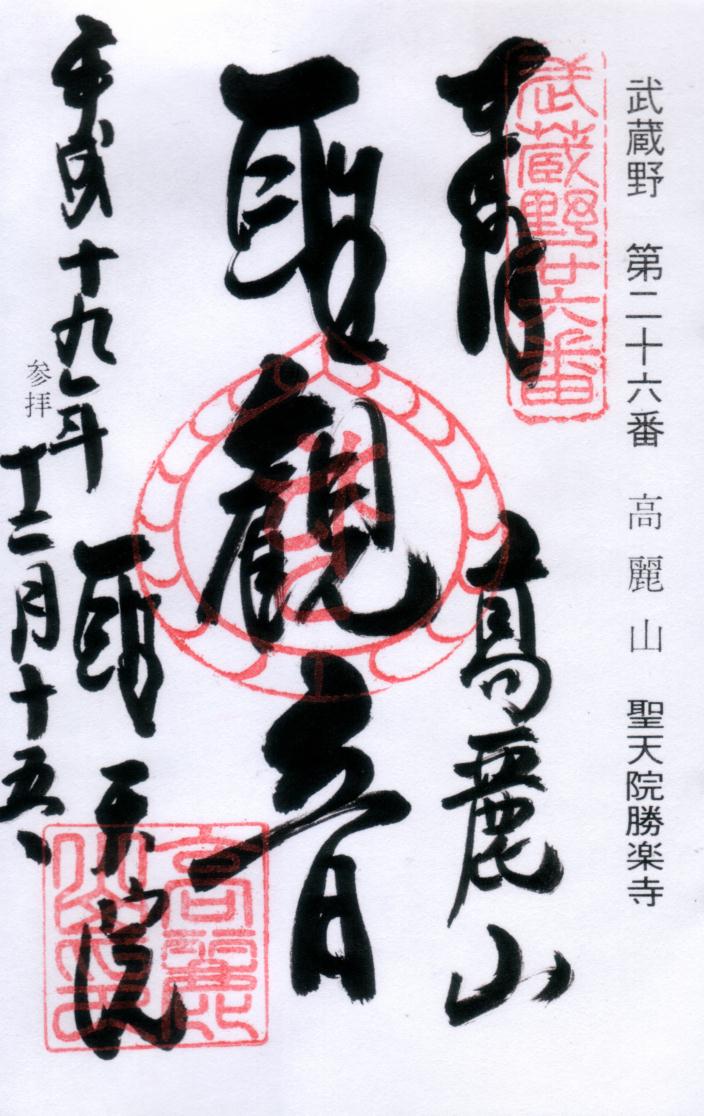 武蔵野 第二十六番 高麗山 聖天院勝楽寺
武蔵野廿六番
奉拝
高麗山
聖観音
聖天院
高麗山印
平成十九年
参拝
十二月十五